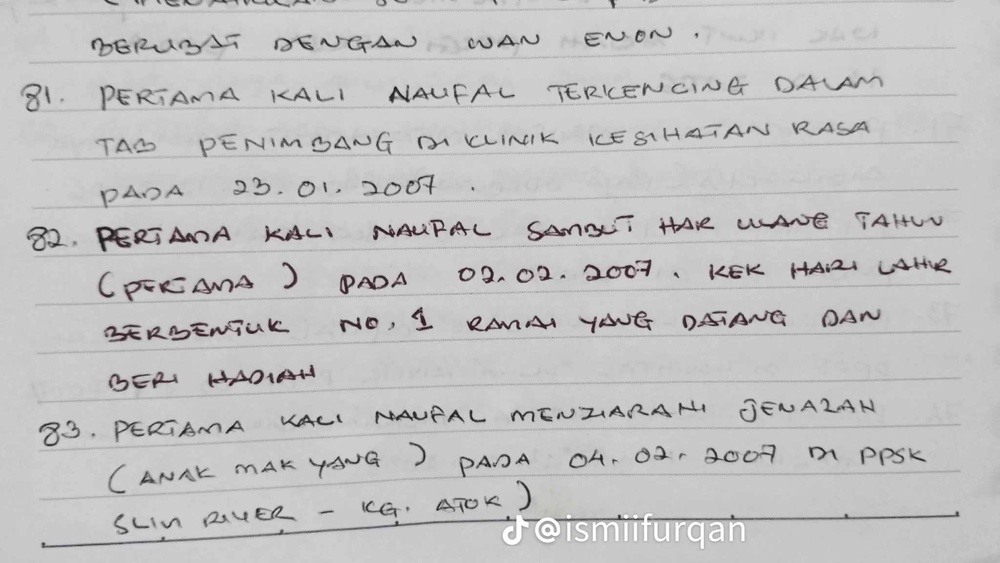 BERUBAT DENGAN WAN ENON.
81. PERTAMA KALI NAUFAL TERKENCING DALAM
TAB PENIMBANG DI KLINIK KESIHATAN RASA
PADA 23.01.2007.
82. PERTAMA KALI NAUFAL SAMBUT HAR ULANG TAHUN
(PERTAMA) PADA 02.02.2007. KEK HARI LAHIR
BERBENTUK NO. 1 RAMAI YANG DATANG DAN
BERI HADIAH
83. PERTAMA KALI NAUFAL MENZIARAHI JENAZAH
(ANAK MAK YANG) PADA 04.02.2007 DI PPSK
SLIM RIVER - KG. ATOK)
@ismiifurqan